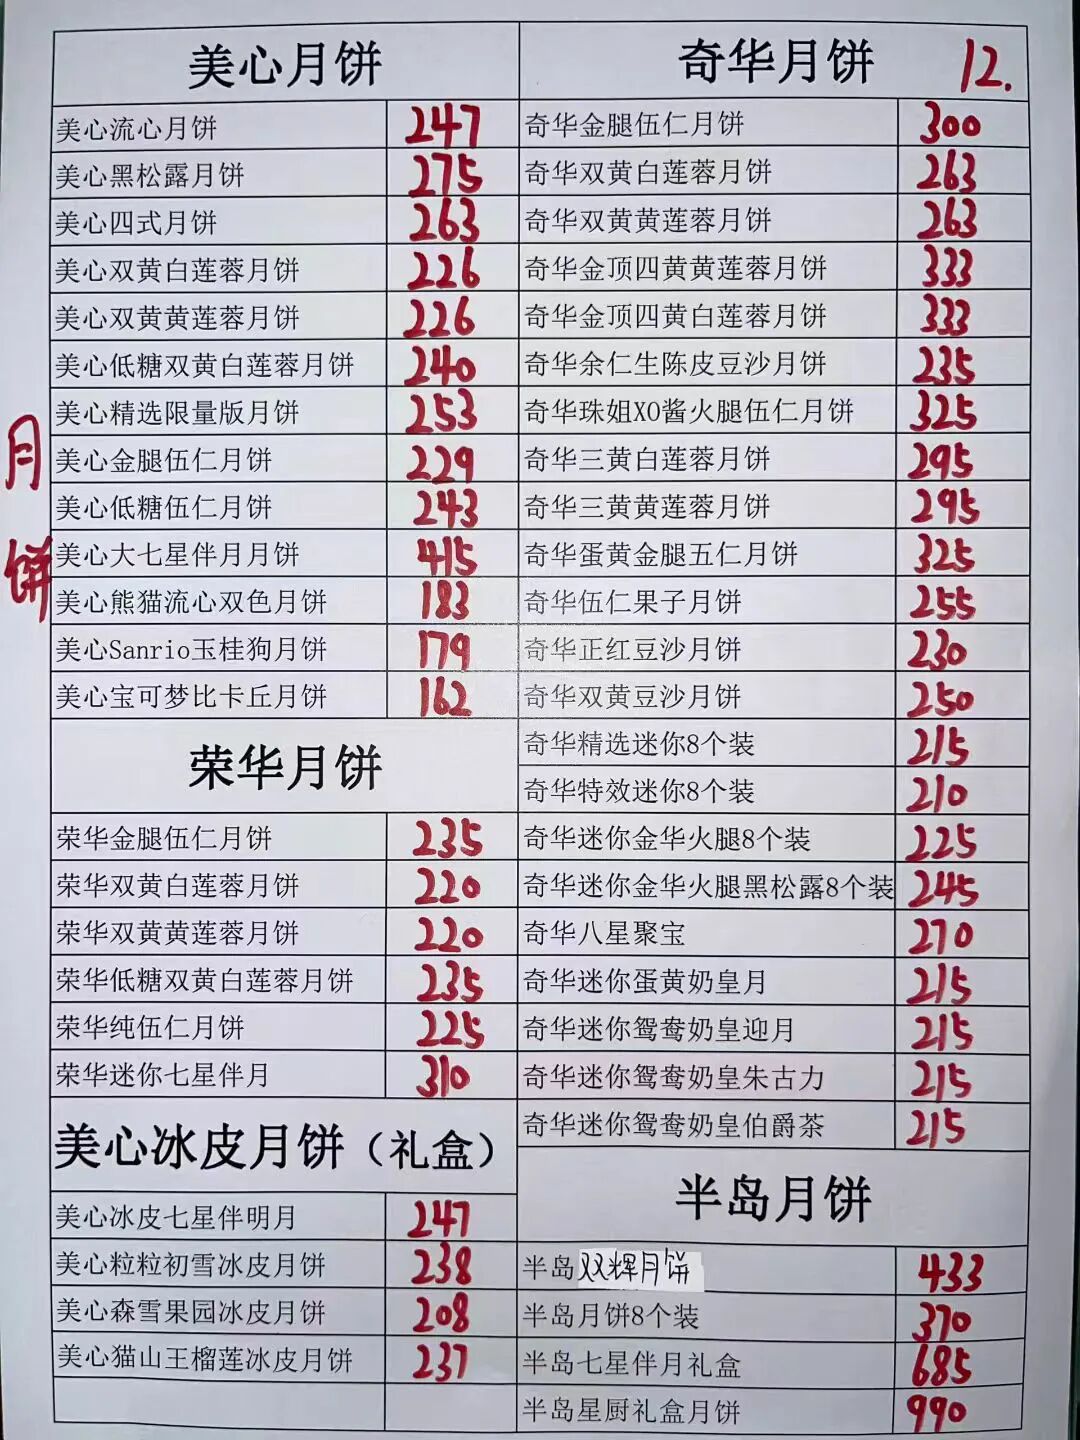 月饼
美心月饼
美心流心月饼 247
美心黑松露月饼 275
美心四式月饼 263
美心双黄白莲蓉月饼 226
美心双黄黄莲蓉月饼 226
美心低糖双黄白莲蓉月饼 240
美心精选限量版月饼 253
美心金腿伍仁月饼 229
美心低糖伍仁月饼 243
美心大七星伴月月饼 415
美心熊猫流心双色月饼 183
美心Sanrio玉桂狗月饼 179
美心宝可梦比卡丘月饼 162
荣华月饼
荣华金腿伍仁月饼 235
荣华双黄白莲蓉月饼 220
荣华双黄黄莲蓉月饼 220
荣华低糖双黄白莲蓉月饼 235
荣华纯伍仁月饼 225
荣华迷你七星伴月 310
美心冰皮月饼（礼盒）
美心冰皮七星伴明月 247
美心粒粒初雪冰皮月饼 238
美心森雪果园冰皮月饼 208
美心猫山王榴莲冰皮月饼 237
奇华月饼 12.
奇华金腿伍仁月饼 300
奇华双黄白莲蓉月饼 263
奇华双黄黄莲蓉月饼 263
奇华金顶四黄黄莲蓉月饼 333
奇华金顶四黄白莲蓉月饼 333
奇华余仁生陈皮豆沙月饼 235
奇华珠姐XO酱火腿伍仁月饼 325
奇华三黄白莲蓉月饼 295
奇华三黄黄莲蓉月饼 295
奇华蛋黄金腿五仁月饼 325
奇华伍仁果子月饼 255
奇华正红豆沙月饼 230
奇华双黄豆沙月饼 250
奇华精选迷你8个装 215
奇华特效迷你8个装 210
奇华迷你金华火腿8个装 225
奇华迷你金华火腿黑松露8个装 245
奇华八星聚宝 270
奇华迷你蛋黄奶皇月 215
奇华迷你鸳鸯奶皇迎月 215
奇华迷你鸳鸯奶皇朱古力 215
奇华迷你鸳鸯奶皇伯爵茶 215
半岛月饼
半岛双辉月饼 433
半岛月饼8个装 370
半岛七星伴月礼盒 685
半岛星厨礼盒月饼 990